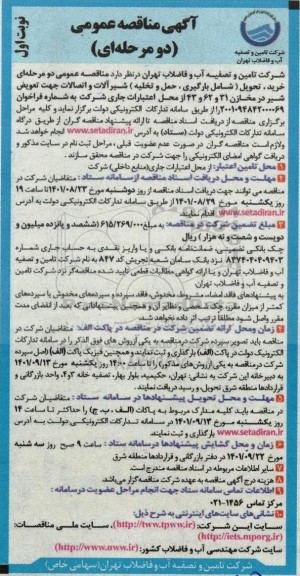 نوبت اول
شرکت تامین و تصفیه
آب و فاضلاب تهران
آگهی مناقصه عمومی
(دو مرحله‌ای)
شرکت تامین و تصفیه آب و فاضلاب تهران درنظر دارد مناقصه عمومی دو مرحله‌ای
خرید، تحویل (شامل بارگیری، حمل و تخلیه) شیرآلات و اتصالات جهت تعویض
شیر در مخازن ۳۱ و ۶۲ و ۴۳ از محل اعتبارات جاری شرکت به شماره فراخوان
از طریق سامانه تدارکات الکترونیکی دولت برگزار نماید و کلیه مراحل
برگزاری مناقصه از دریافت اسناد مناقصه تا ارائه پیشنهاد مناقصه گران از طریق درگاه
سامانه تدارکات الکترونیکی دولت (ستاد) به آدرس www.setadiran.ir انجام خواهد شد
و لازم است مناقصه گران در صورت عدم عضویت قبلی، مراحل ثبت نام در سایت مذکور و
دریافت گواهی امضای الکترونیکی را جهت شرکت در مناقصه محقق سازند.
محل تامین اعتبار: از محل اعتبارات جاری (منابع داخلی) شرکت
مهلت و محل دریافت اسناد مناقصه ازسامانه ستاد: متقاضیان شرکت در
مناقصه می توانند جهت دریافت اسناد مناقصه از روز دوشنبه مورخ ۱۴۰۱/۰۸/۲۳ تا ساعت ۱۹
روز یکشنبه مورخ ۱۴۰۱/۰۸/۲۹ از طریق سامانه تدارکات الکترونیکی دولت به آدرس
www.setadiran.ir اقدام نمایند.
مبلغ تضمین شرکت در مناقصه: به مبلغ ۶۱۵/۲۶۹/۰۰۰ (ششصد و پانزده میلیون و
دویست و شصت و نه هزار) ریال
چک بانکی تضمینی، ضمانتنامه بانکی و یا واریز نقدی به حساب جاری شماره
نزد بانک سامان شعبه تجریش کد ۸۴۷ به نام شرکت تامین و تصفیه
آب و فاضلاب تهران و یا ارائه گواهی مطالبات قطعی تایید شده مناقصه گر نزد شرکت تامین
و تصفیه آب و فاضلاب تهران
به پیشنهادهای فاقد امضاء، مشروط، مخدوش، فاقد سپرده و سپرده‌های مخدوش یا سپرده‌های
کمتر از میزان مقرر، چک شخصی و نظایر آن و همچنین پیشنهاداتی که بعد از انقضای مدت
مقرر واصل شود مطلقا ترتیب اثر داده نخواهد شد.
زمان ومحل ارائه تضمین شرکت در مناقصه در پاکت الف: متقاضیان شرکت در
مناقصه باید تصویر سپرده شرکت درمناقصه به یکی ازروش های فوق الذکر را در سامانه تدارکات
الکترونیک دولت در پاکت (الف) بارگذاری و ثبت نمایند و همچنین فیزیک پاکت (الف) (اصل سپرده
شرکت در مناقصه به یکی از روش‌های مذکور) را تا ساعت ۱۴:۰۰ روز یکشنبه مورخ ۱۴۰۱/۰۹/۱۳
به دبیرخانه این شرکت به نشانی: تهران، حکیمیه، بلوار بهار، تصفیه خانه ۳و۴، واحد بازرگانی و
قراردادها منطقه شرق تحویل و رسید دریافت نمایند.
مهلت و محل تحویل پیشنهادها در سامانه ستاد: متقاضیان شرکت
در مناقصه باید کلیه مدارک مربوط به پاکات (الف، ب، ج) را حداکثر تا ساعت ۱۴
روز یکشنبه مورخ ۱۴۰۱/۰۹/۱۳ در سامانه تدارکات الکترونیکی دولت به آدرس
www.setadiran.ir بارگذاری و ثبت نمایند.
زمان و محل گشایش پیشنهادها درسامانه ستاد: ساعت ۹ صبح روز سه شنبه
مورخ ۱۴۰۱/۰۹/۲۲ در دفتر بازرگانی و قراردادها منطقه شرق
سایر اطلاعات مربوطه در اسناد مناقصه مندرج است.
هزینه درج آگهی مناقصه به عهده شرکت مناقصه‌گزار می‌باشد.
اطلاعات تماس سامانه ستاد جهت انجام مراحل عضویت درسامانه:
مرکز تماس ۱۴۵۶-۰۲۱
نشانی‌های سایت‌های اینترنتی به شرح ذیل:
سایت این شرکت: (http://tww.tpww.ir)، سایت ملی مناقصات:
(http://iets.mporg.ir)
سایت شرکت مهندسی آب و فاضلاب کشور: (http://www.nww.ir)
شرکت تامین و تصفیه آب و فاضلاب تهران (سهامی خاص)